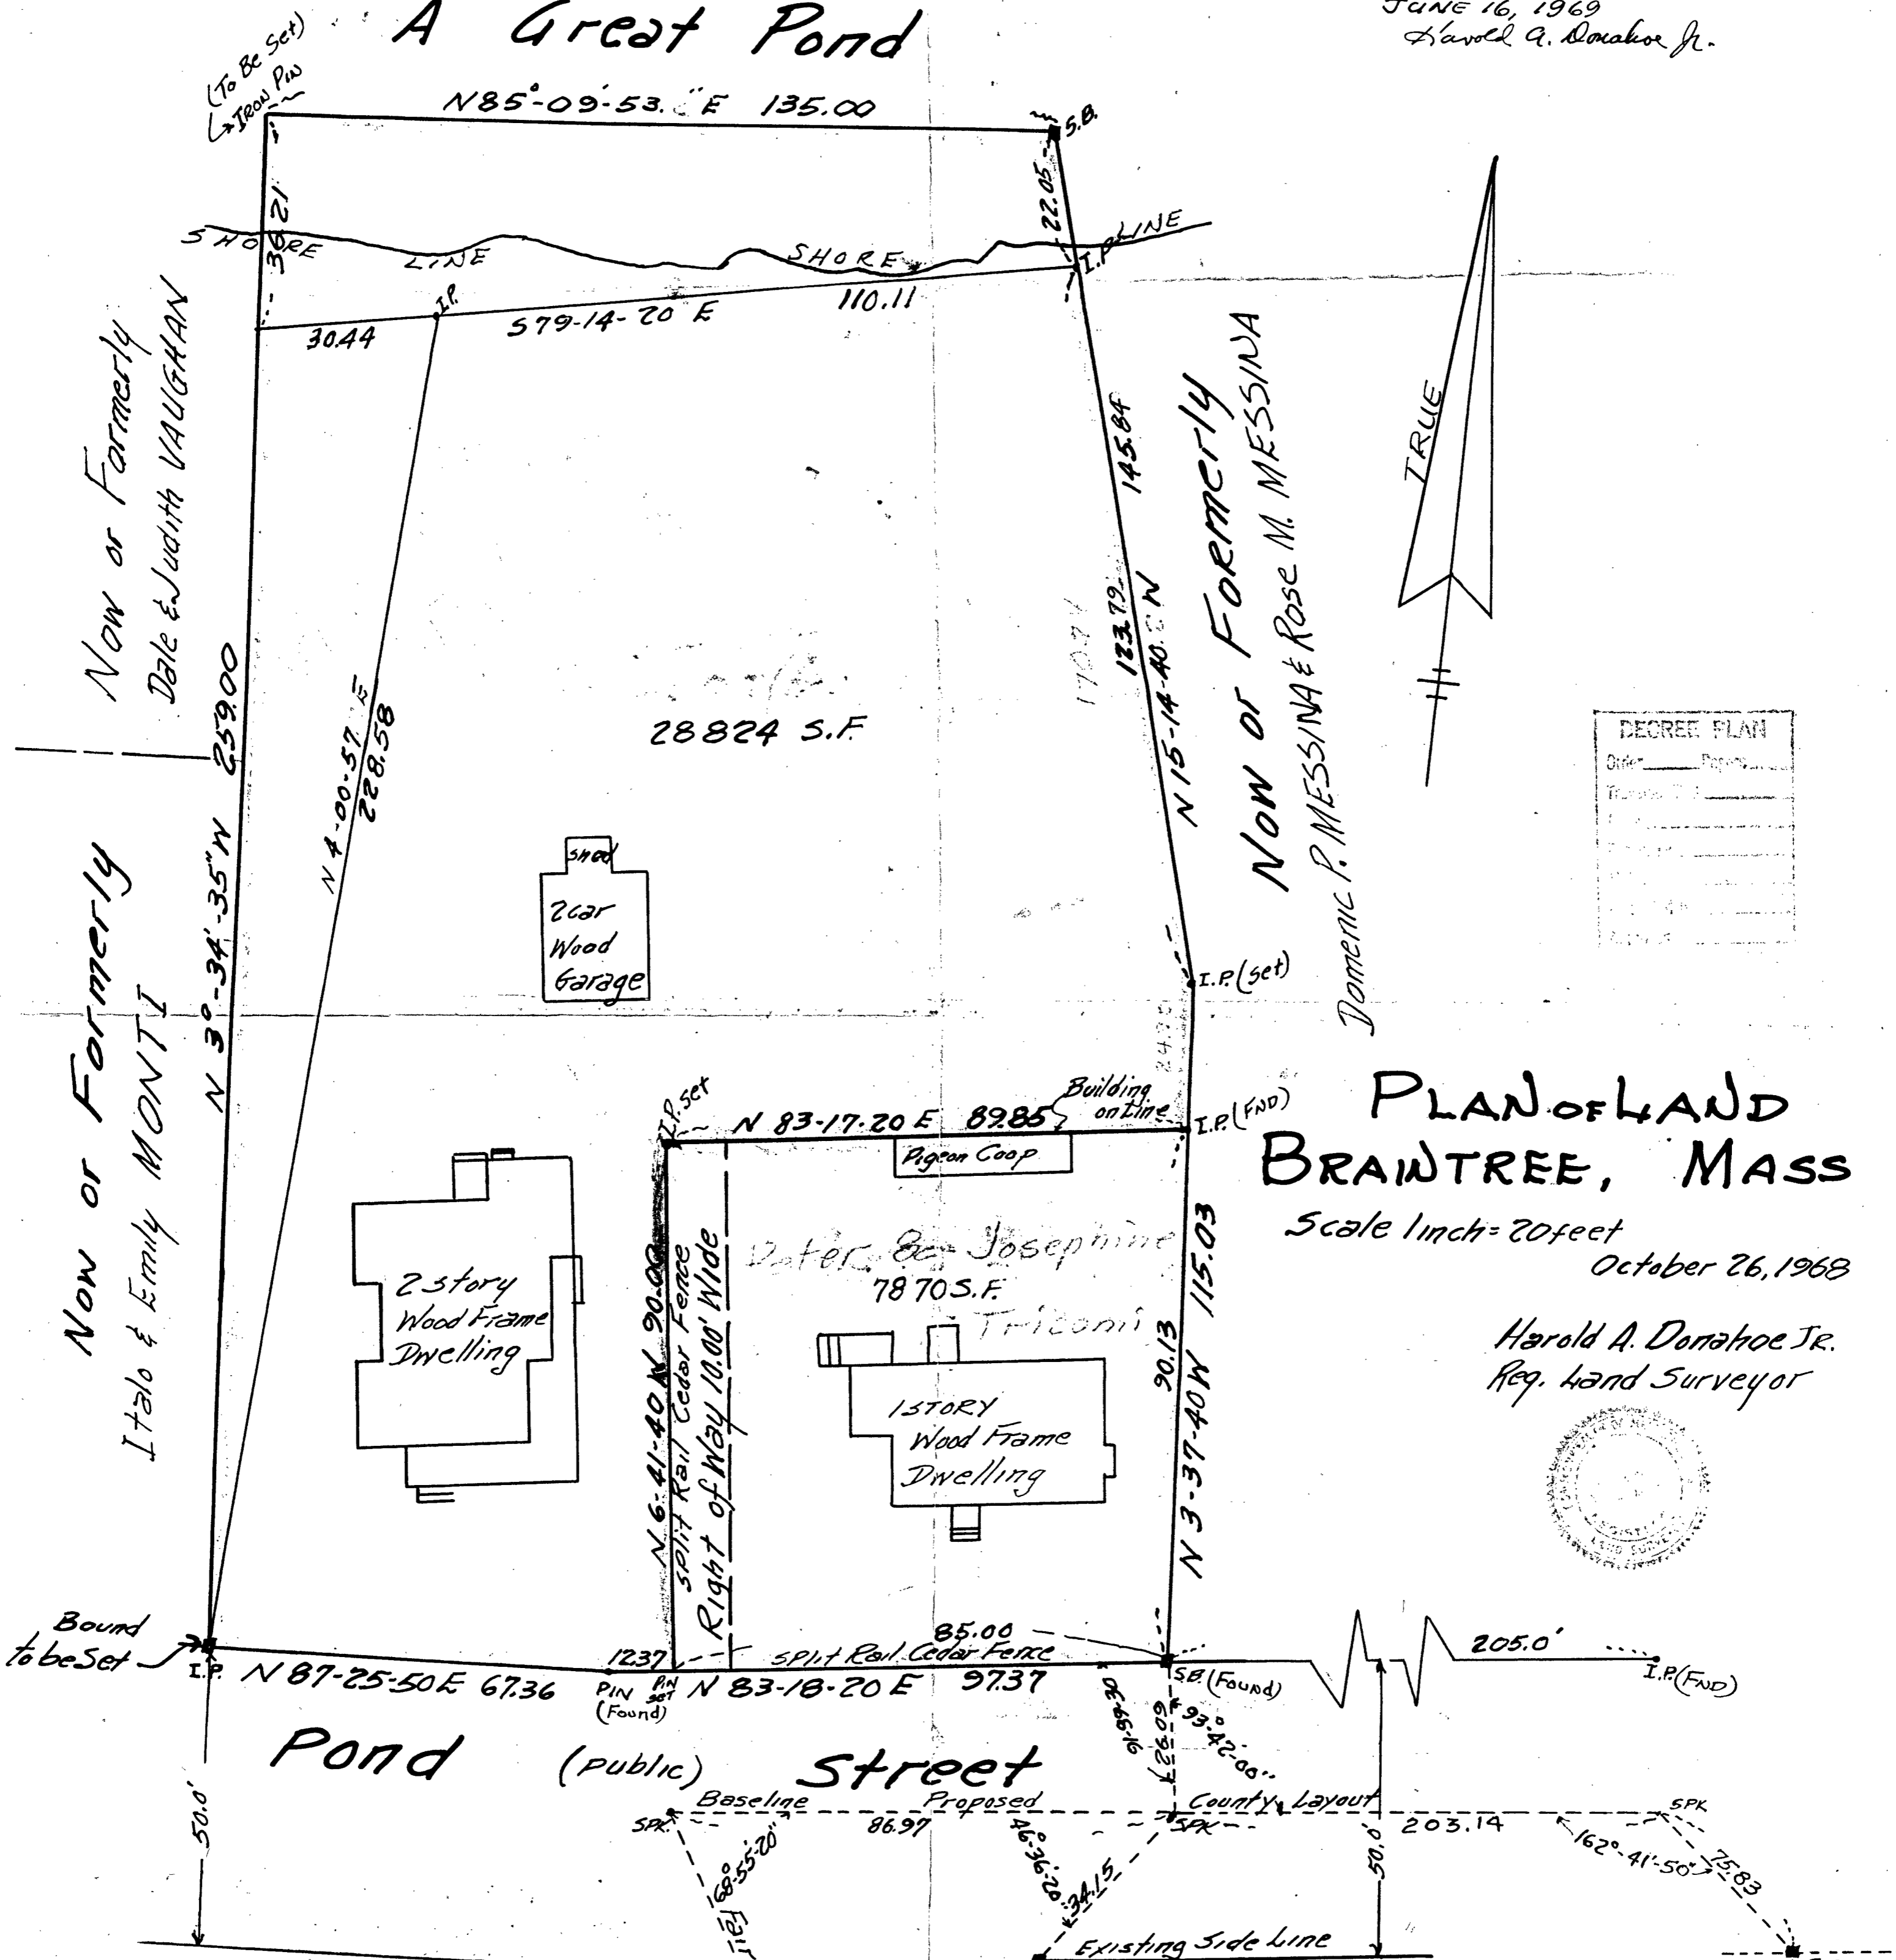 A Great Pond
JUNE 16, 1969
Harold A. Donahoe Jr.
(To Be Set)
IRON PIN
N85°-09'-53. " E 135.00
S.B.
36.21
22.05
SHORE LINE
SHORE LINE
I.P.
I.P.
30.44
S79-14-20 E
110.11
Now or Formerly
Dale & Judith VAUGHAN
N 3°-34'-35" W 259.00
N 4-00-57 E
228.58
28824 S.F.
145.84
123.79
N 15-14-40 W
Now or Formerly
Domenic P. MESSINA & Rose M. MESSINA
TRUE
DECREE PLAN
Shed
2 car
Wood
Garage
I.P. (set)
24.90
Now or Formerly
Italo & Emily MONTI
I.P. set
N 83-17-20 E 89.85
Building
on Line
I.P. (FND)
Pigeon Coop
PLAN OF LAND
BRAINTREE, MASS
Scale 1 inch = 20 feet
October 26, 1968
Harold A. Donahoe Jr.
Reg. Land Surveyor
2 Story
Wood Frame
Dwelling
N 6-41-40 W 90.00
Split Rail Cedar Fence
Right of Way 10.00' Wide
Josephine
7870 S.F.
1 STORY
Wood Frame
Dwelling
90.13
N 3-37-40 W 115.03
Bound
to be Set
I.P.
N 87-25-50 E 67.36
12.37
PIN
(Found)
PIN
set
85.00
Split Rail Cedar Fence
N 83-18-20 E 97.37
S.B. (Found)
205.0'
I.P. (FND)
Pond (public) Street
91-59-30
26.09
93°-42'-00"
50.0'
Baseline Proposed County Layout
SPK
86.97
SPK
203.14
SPK
68°-55'-20"
46°-36'-20"
34.15
50.0
162°-41'-50"
75.83
Existing Side Line